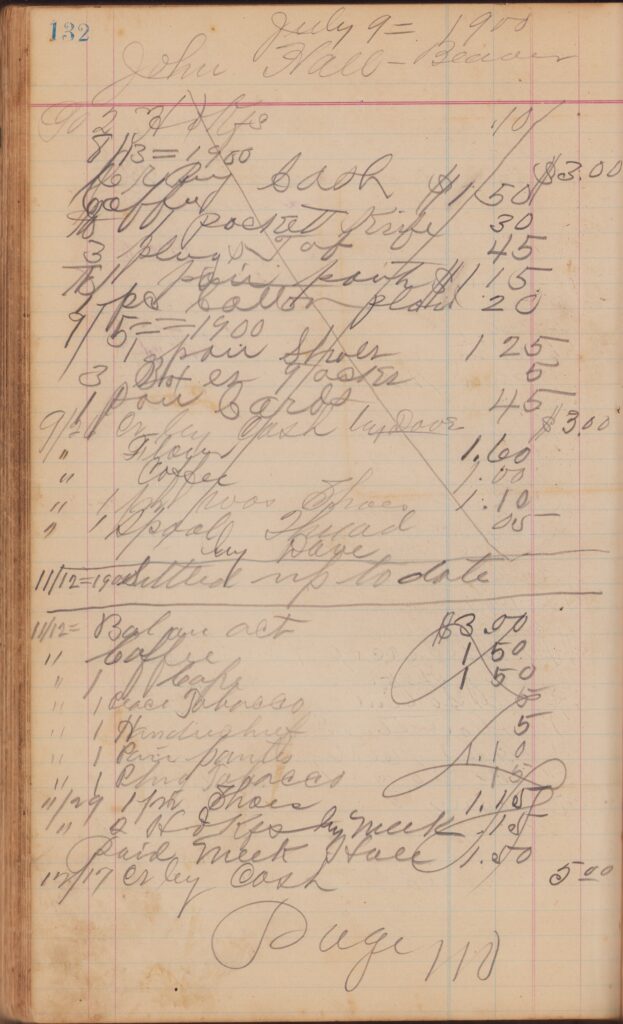 132
July 9= 1900
John Hall - Beaver
To 2 Hdkfs .10
8/13=1900
Cr by Cash $1.50 $3.00
Coffee
1 pocket Knife 30
3 plugs Tob 45
1 pair pants $1 15
1 pc Cotton plaid 20
9/5==1900
1 pair Shoes 1 25
3 Boxes Tacks 5
1 pair Cards 45
9/2 Cr by Cash by Dave $3.00
" Flour 1.60
" Coffee 1.00
" 1 pr Shoes 1.10
" 1 Spool Thread 05
by Dave
11/12=1900 Settled up to date
11/12= Balan act $3.00
" Coffee 1 50
" 1 Cape 1 50
" 1 Piece Tobacco 5
" 1 Handkerchief 5
" 1 Pair pants 1.10
" 1 Plug Tobacco 15
11/29 1 pr Shoes 1.15
" 2 Hdkfs by Meek .15
Paid Meek Hall 1.50
12/17 Cr by Cash 5.00
Page 110